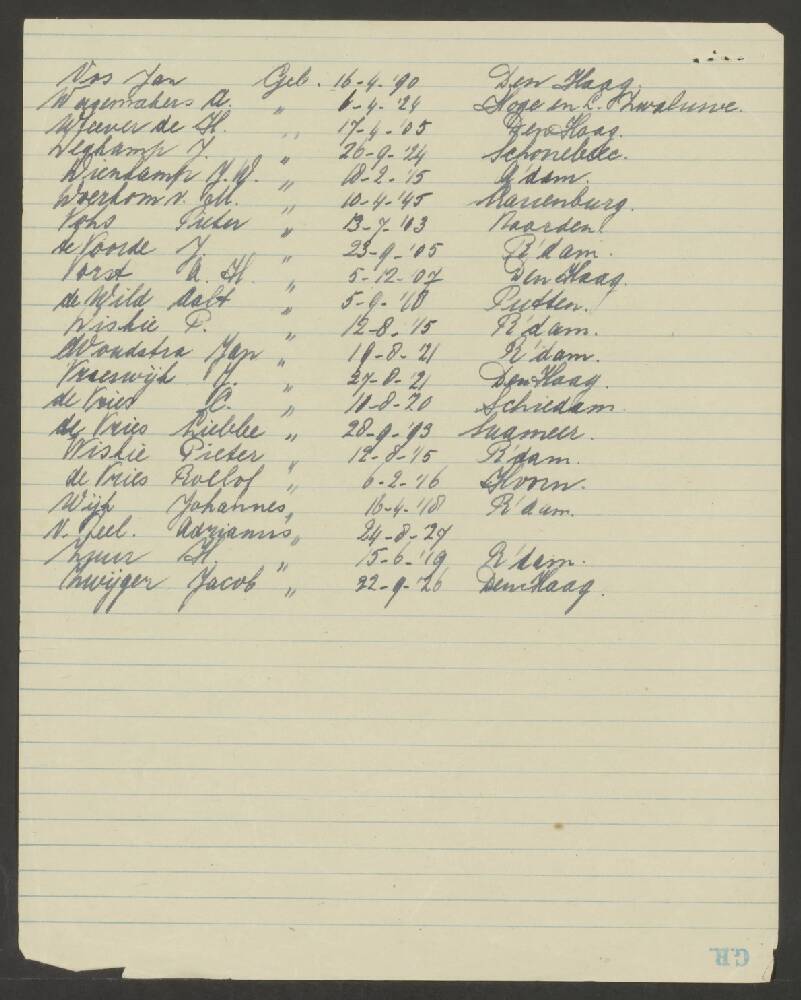 Vos Jan Geb. 16-4-'90 Den Haag
Wagemakers A. " 6-4-'24 Hoge en L. Zwaluwe.
Weever de H. " 17-4-'05 Den Haag.
Weghamp J. " 26-9-'24 Schonebeec.
Wienkamp J.W. " 18-2-'15 A'dam.
Woerkom v. M. " 10-4-'45 Marienburg.
Vohs Pieter " 13-7-'03 Naarden
de Voorde J. " 23-9-'05 R'dam.
Vorst A. H. " 5-12-'07 Den Haag.
de Wild Aalt " 5-9-'18 Putten.
Wiskie P. " 12-8-'15 R'dam.
Woudstra Jan " 19-8-'21 R'dam.
Vreeswijk J. " 27-8-'21 Den Haag.
de Vries C. " 11-8-20 Schiedam
de Vries Liebbe " 28-9-'93 Suameer.
Wiskie Pieter " 12-8-'15 R'dam.
de Vries Roelof " 6-2-'16 Hoorn.
Wijk Johannes " 16-4-'18 R'dam.
v. Zeel. Adrianus " 24-8-27
Zuur H. " 15-6-'19 R'dam.
Zwijger Jacob " 22-9-'26 Den Haag.
G.R.